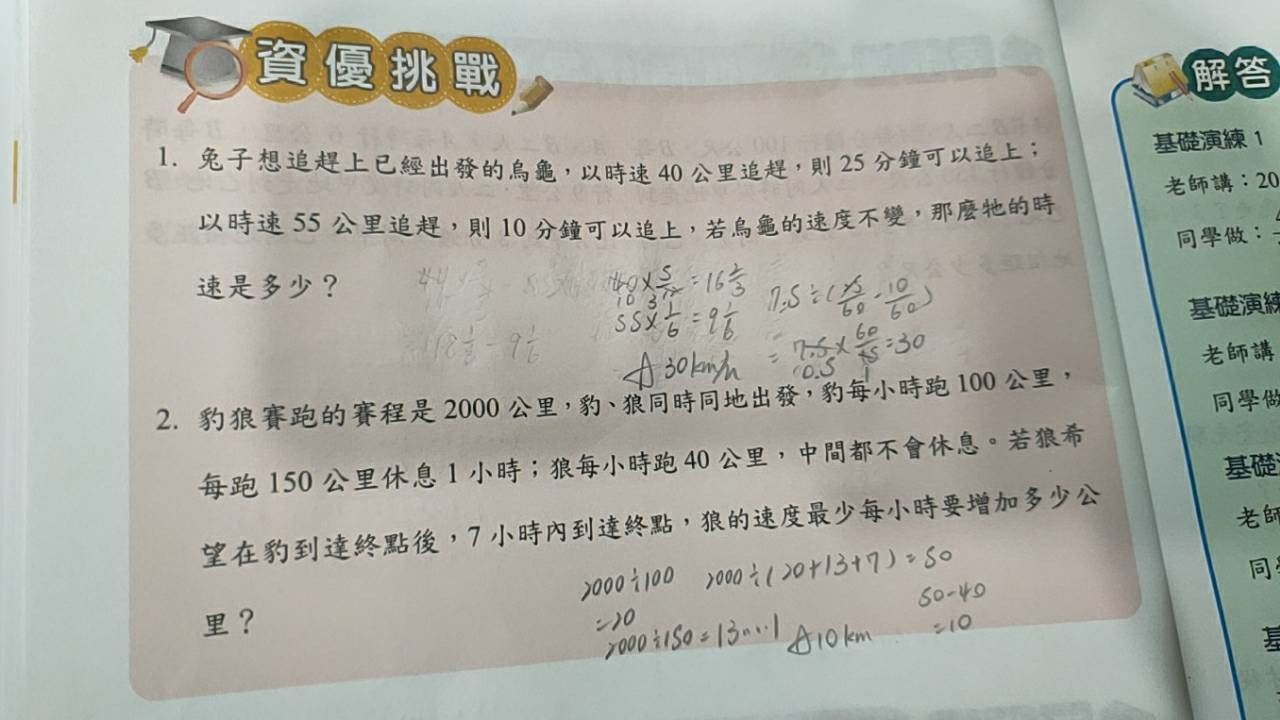 資優挑戰
1. 兔子想追趕上已經出發的烏龜，以時速 40 公里追趕，則 25 分鐘可以追上；
以時速 55 公里追趕，則 10 分鐘可以追上，若烏龜的速度不變，那麼牠的時
速是多少？
40×5/12=16 2/3
10 3
55×1/6=9 1/6
A 30km/h
7.5÷(25/60-10/60)
=7.5×60/15=30
0.5 1
2. 豹狼賽跑的賽程是 2000 公里，豹、狼同時同地出發，豹每小時跑 100 公里，
每跑 150 公里休息 1 小時；狼每小時跑 40 公里，中間都不會休息。若狼希
望在豹到達終點後，7 小時內到達終點，狼的速度最少每小時要增加多少公
里？
2000÷100
=20
2000÷150=13…1
2000÷(20+13+7)=50
50-40
=10
A 10km
解答
基礎演練 1
老師講：20
同學做：
基礎演練
老師講
同學做
基礎
老師
同